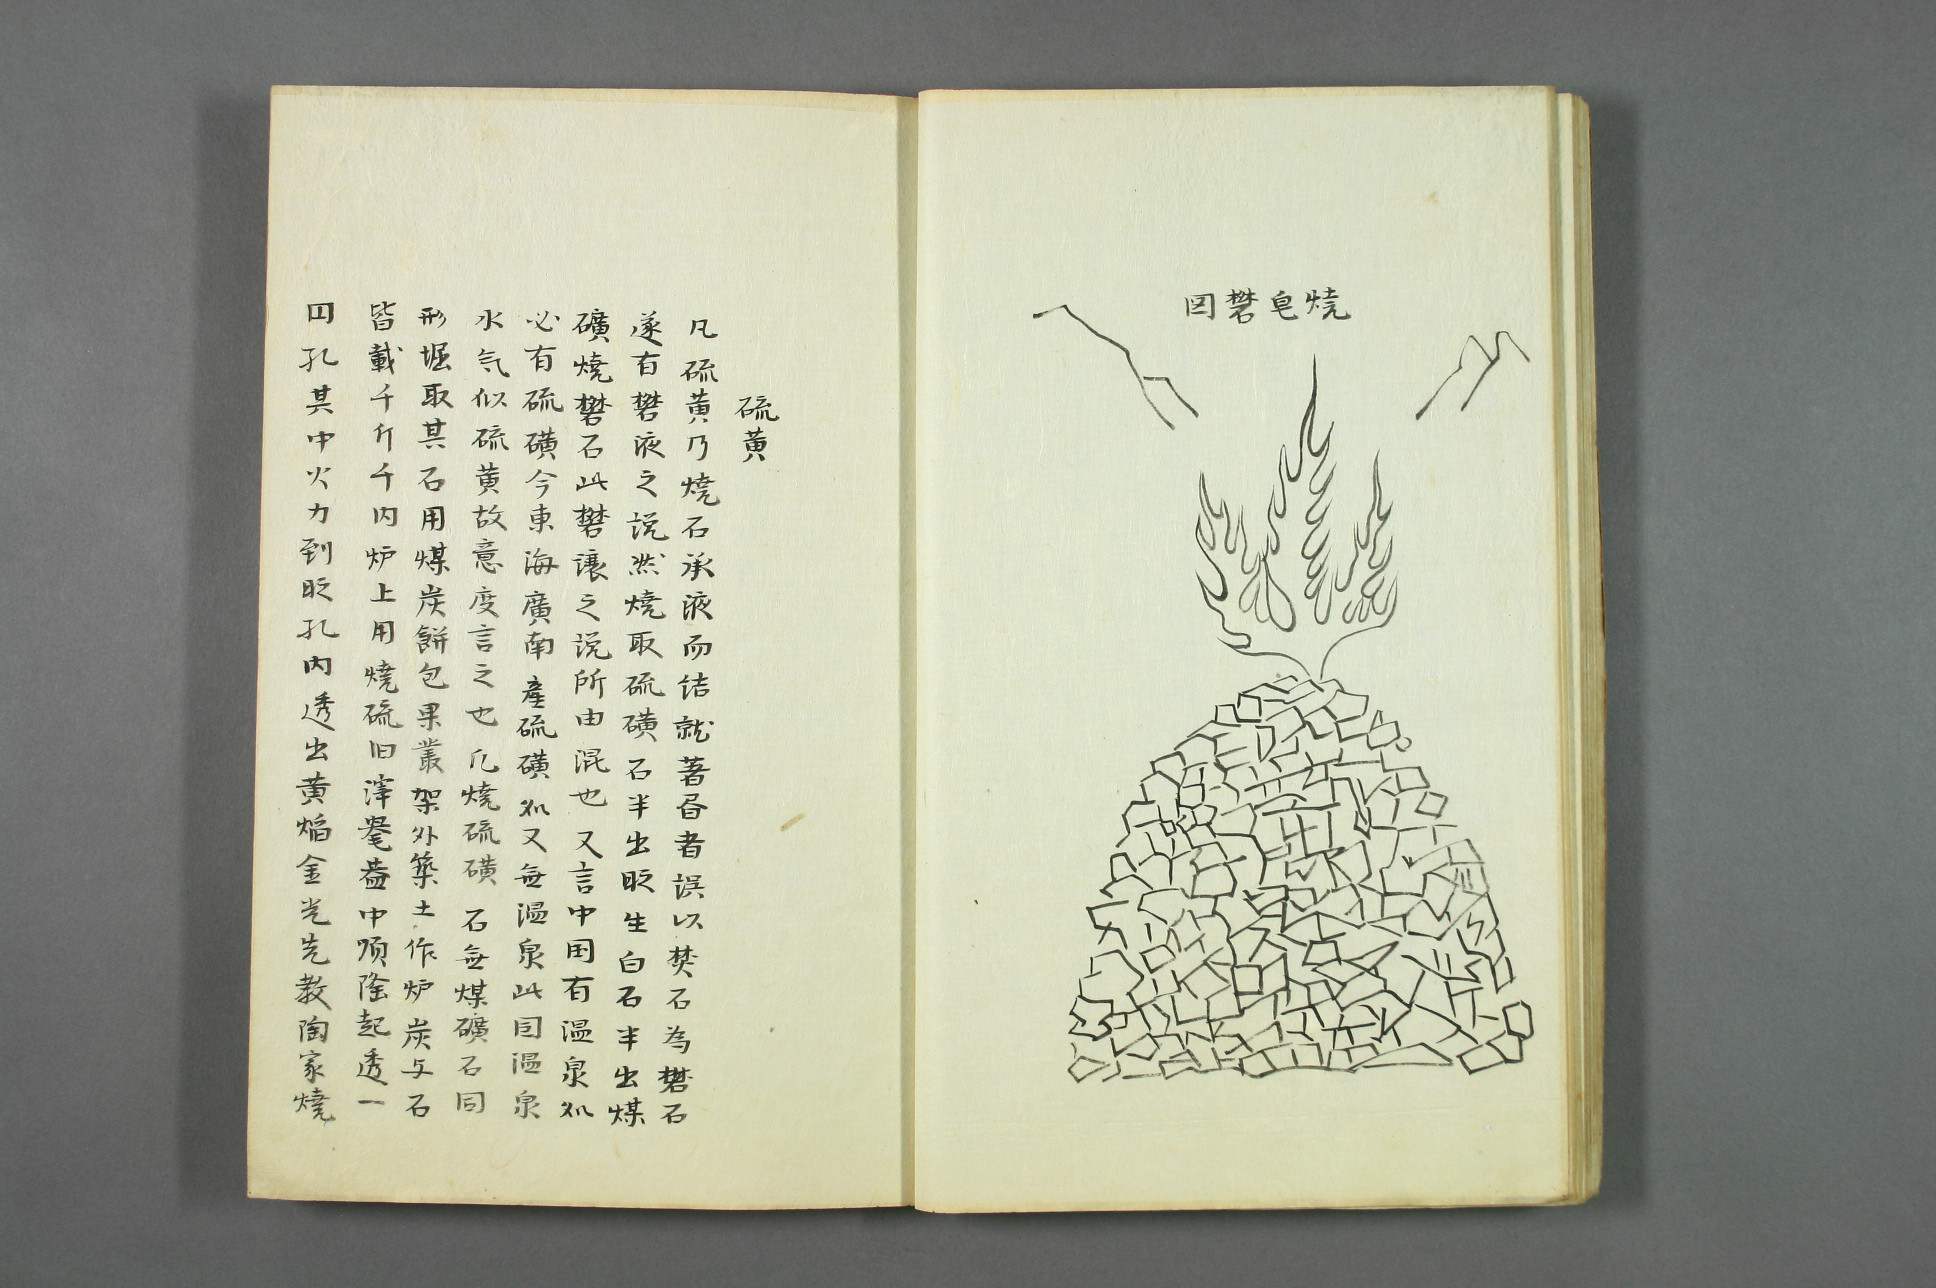 燒皂礬図
硫黄
凡硫黄乃燒石承液而结就著昏者誤以焚石為礬石
遂有礬液之説然燒取硫磺石半出眂生白石半出煤
礦燒礬石此礬讓之说所由混也又言中国有温泉処
必有硫磺今東海廣南産硫磺処又無温泉此因温泉
水気似硫黄故意度言之也凡燒硫磺石無煤礦石同
形堀取其石用煤炭餅包果叢架外築土作炉炭与石
皆載千斤千内炉上用燒硫旧滓罨盖中頂隆起透一
円孔其中火力到眂孔内透出黄焰金光先教陶家燒